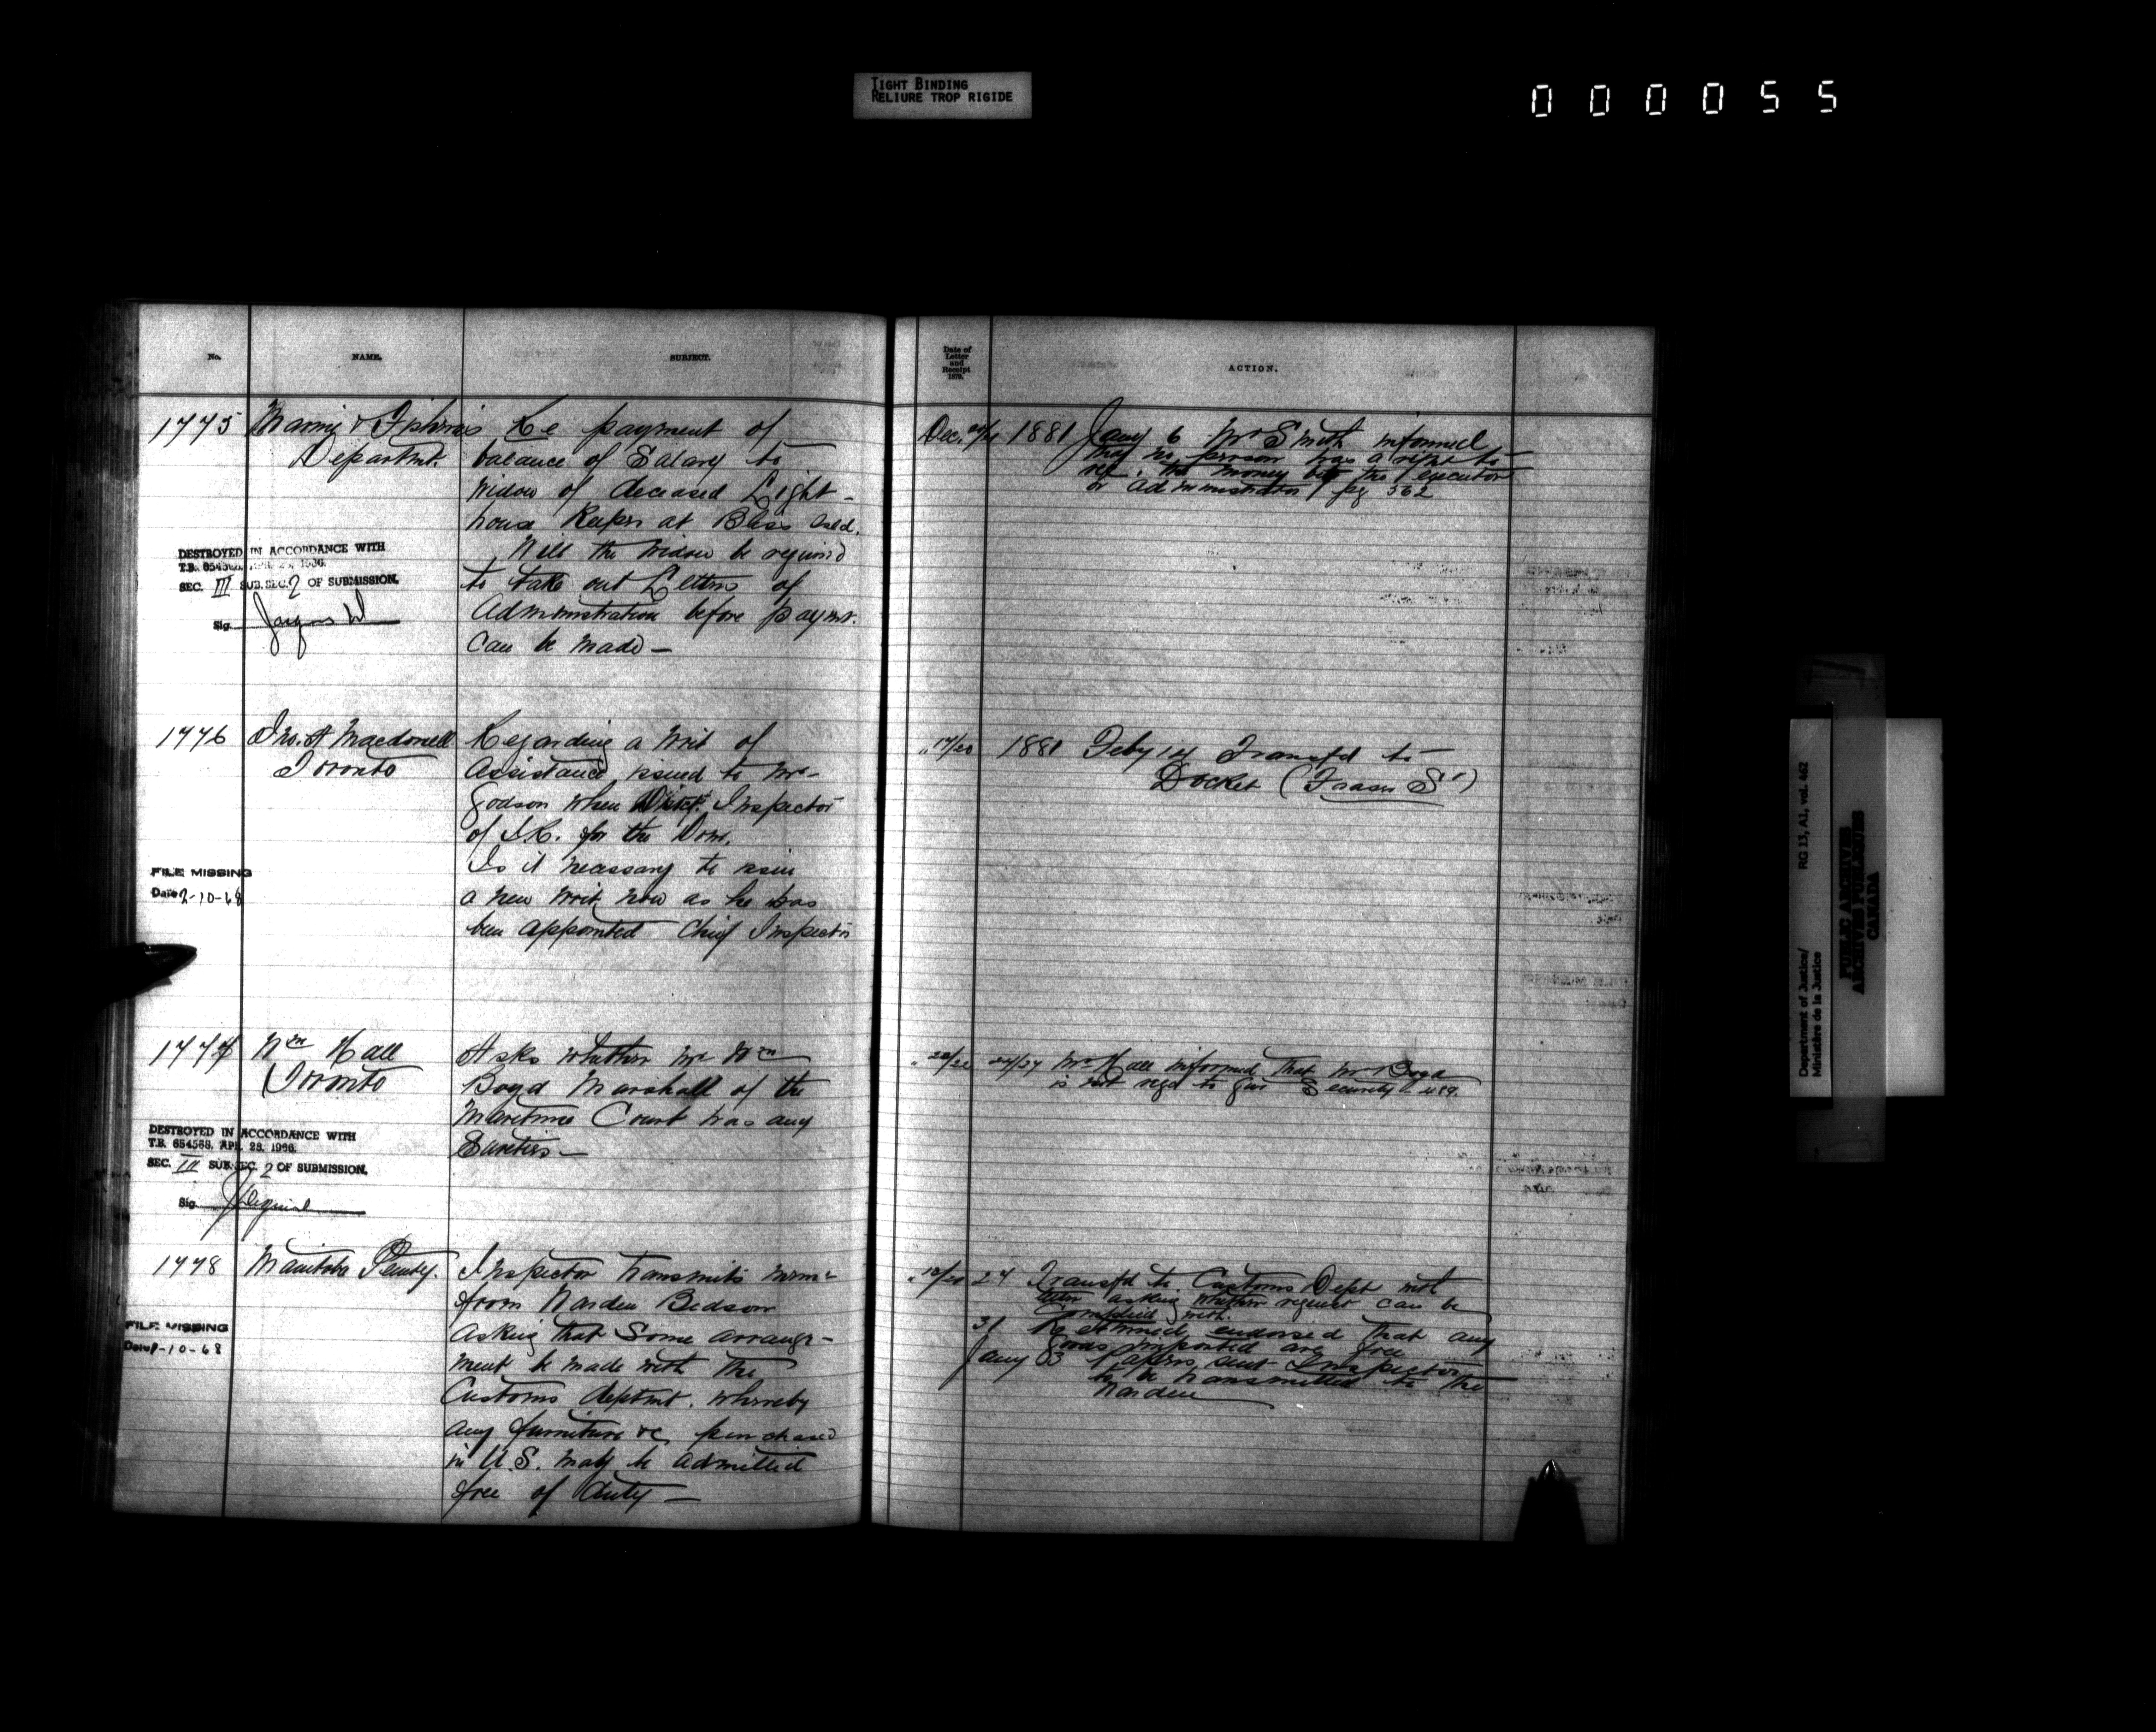 TIGHT BINDING
RELIURE TROP RIGIDE
000055
No.
NAME.
SUBJECT.
Date of
Letter
and
Receipt
1879.
ACTION.
1775
Marine & Fisheries
Departmt.
Re payment of
balance of Salary to
widow of deceased Light-
house Keeper at Bliss Isld.
Will the widow be required
to take out Letters of
Administration before paymt.
can be made —
Dec.
1881 Jany 6 Mr Smith informed
that no person has a right to
the money but the executor
or administrator pg 562
DESTROYED IN ACCORDANCE WITH
SEC. III SUB.SEC. 2 OF SUBMISSION.
Sig.
1776
Jno. A Macdonell
Toronto
Regarding a Writ of
Assistance, issued to Mr.
Godson when Dist. Inspector
of I.R. for the Dom.
Is it necessary to issue
a new writ now as he has
been appointed Chief Inspector
" 17/20
1881 Feby 14 Transfd to
Docket (Fraser S')
FILE MISSING
Date 2-10-68
1777
Wm Hall
Toronto
Asks whether Mr Wm
Boyd Marshall of the
Maritime Court has any
Sureties —
"
24/27 Mr Hall informed that Mr Boyd
is not reqd to give Security 489.
DESTROYED IN ACCORDANCE WITH
T.B. 654568, APR. 28, 1966.
SEC. III SUB.SEC. 2 OF SUBMISSION.
Sig.
1778
Manitoba Penty.
Inspector transmits memo
from Warden Bedson
asking that some arrange-
ment be made with the
Customs deptmt. whereby
any furniture &c purchased
in U.S. may be admitted
free of duty —
" 18/20
24 Transfd to Customs Dept with
letter asking whether request can be
complied with.
31 Returned, endorsed that any
goods imported are free
Jany 3 Papers sent Inspector
to be transmitted to the
Warden
FILE MISSING
Date 2-10-68
Department of Justice/
Ministère de la Justice
RG 13, A1, vol. 462
PUBLIC ARCHIVES
ARCHIVES PUBLIQUES
CANADA